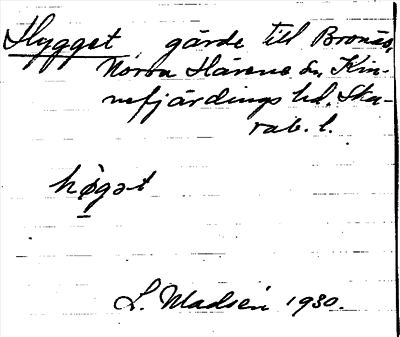 Hygget, gärde till Bronäs,
Norra Härene sn, Kin-
nefjärdings hd, Ska-
rab. l.
hø̀gət
L. Madsén 1930.